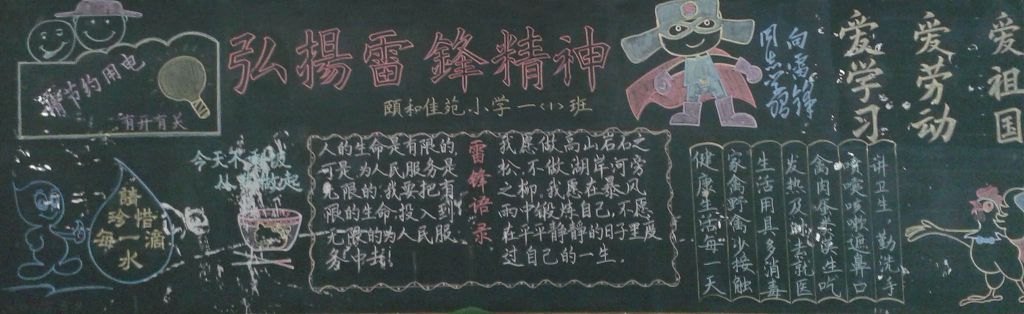 弘揚雷鋒精神
颐和佳苑小学一〈1〉班
请节约用电
有开有关
今天不
請
珍惜
每一滴
水
人的生命是有限的
可是,为人民服务是
无限的,我要把有
限的生命,投入到
无限的为人民服
务中去!
雷锋语录
我愿做高山岩石之
松,不做湖岸河旁
之柳。我愿在暴风
雨中锻炼自己,不愿
在平平静静的日子里度
过自己的一生。
向雷锋
同志学习
爱学习
爱劳动
爱祖国
讲卫生 勤洗手
喷嚏咳嗽遮鼻口
禽肉蛋要熟吃
发热及时去就医
生活用具多消毒
家禽野禽少接触
健康生活每一天